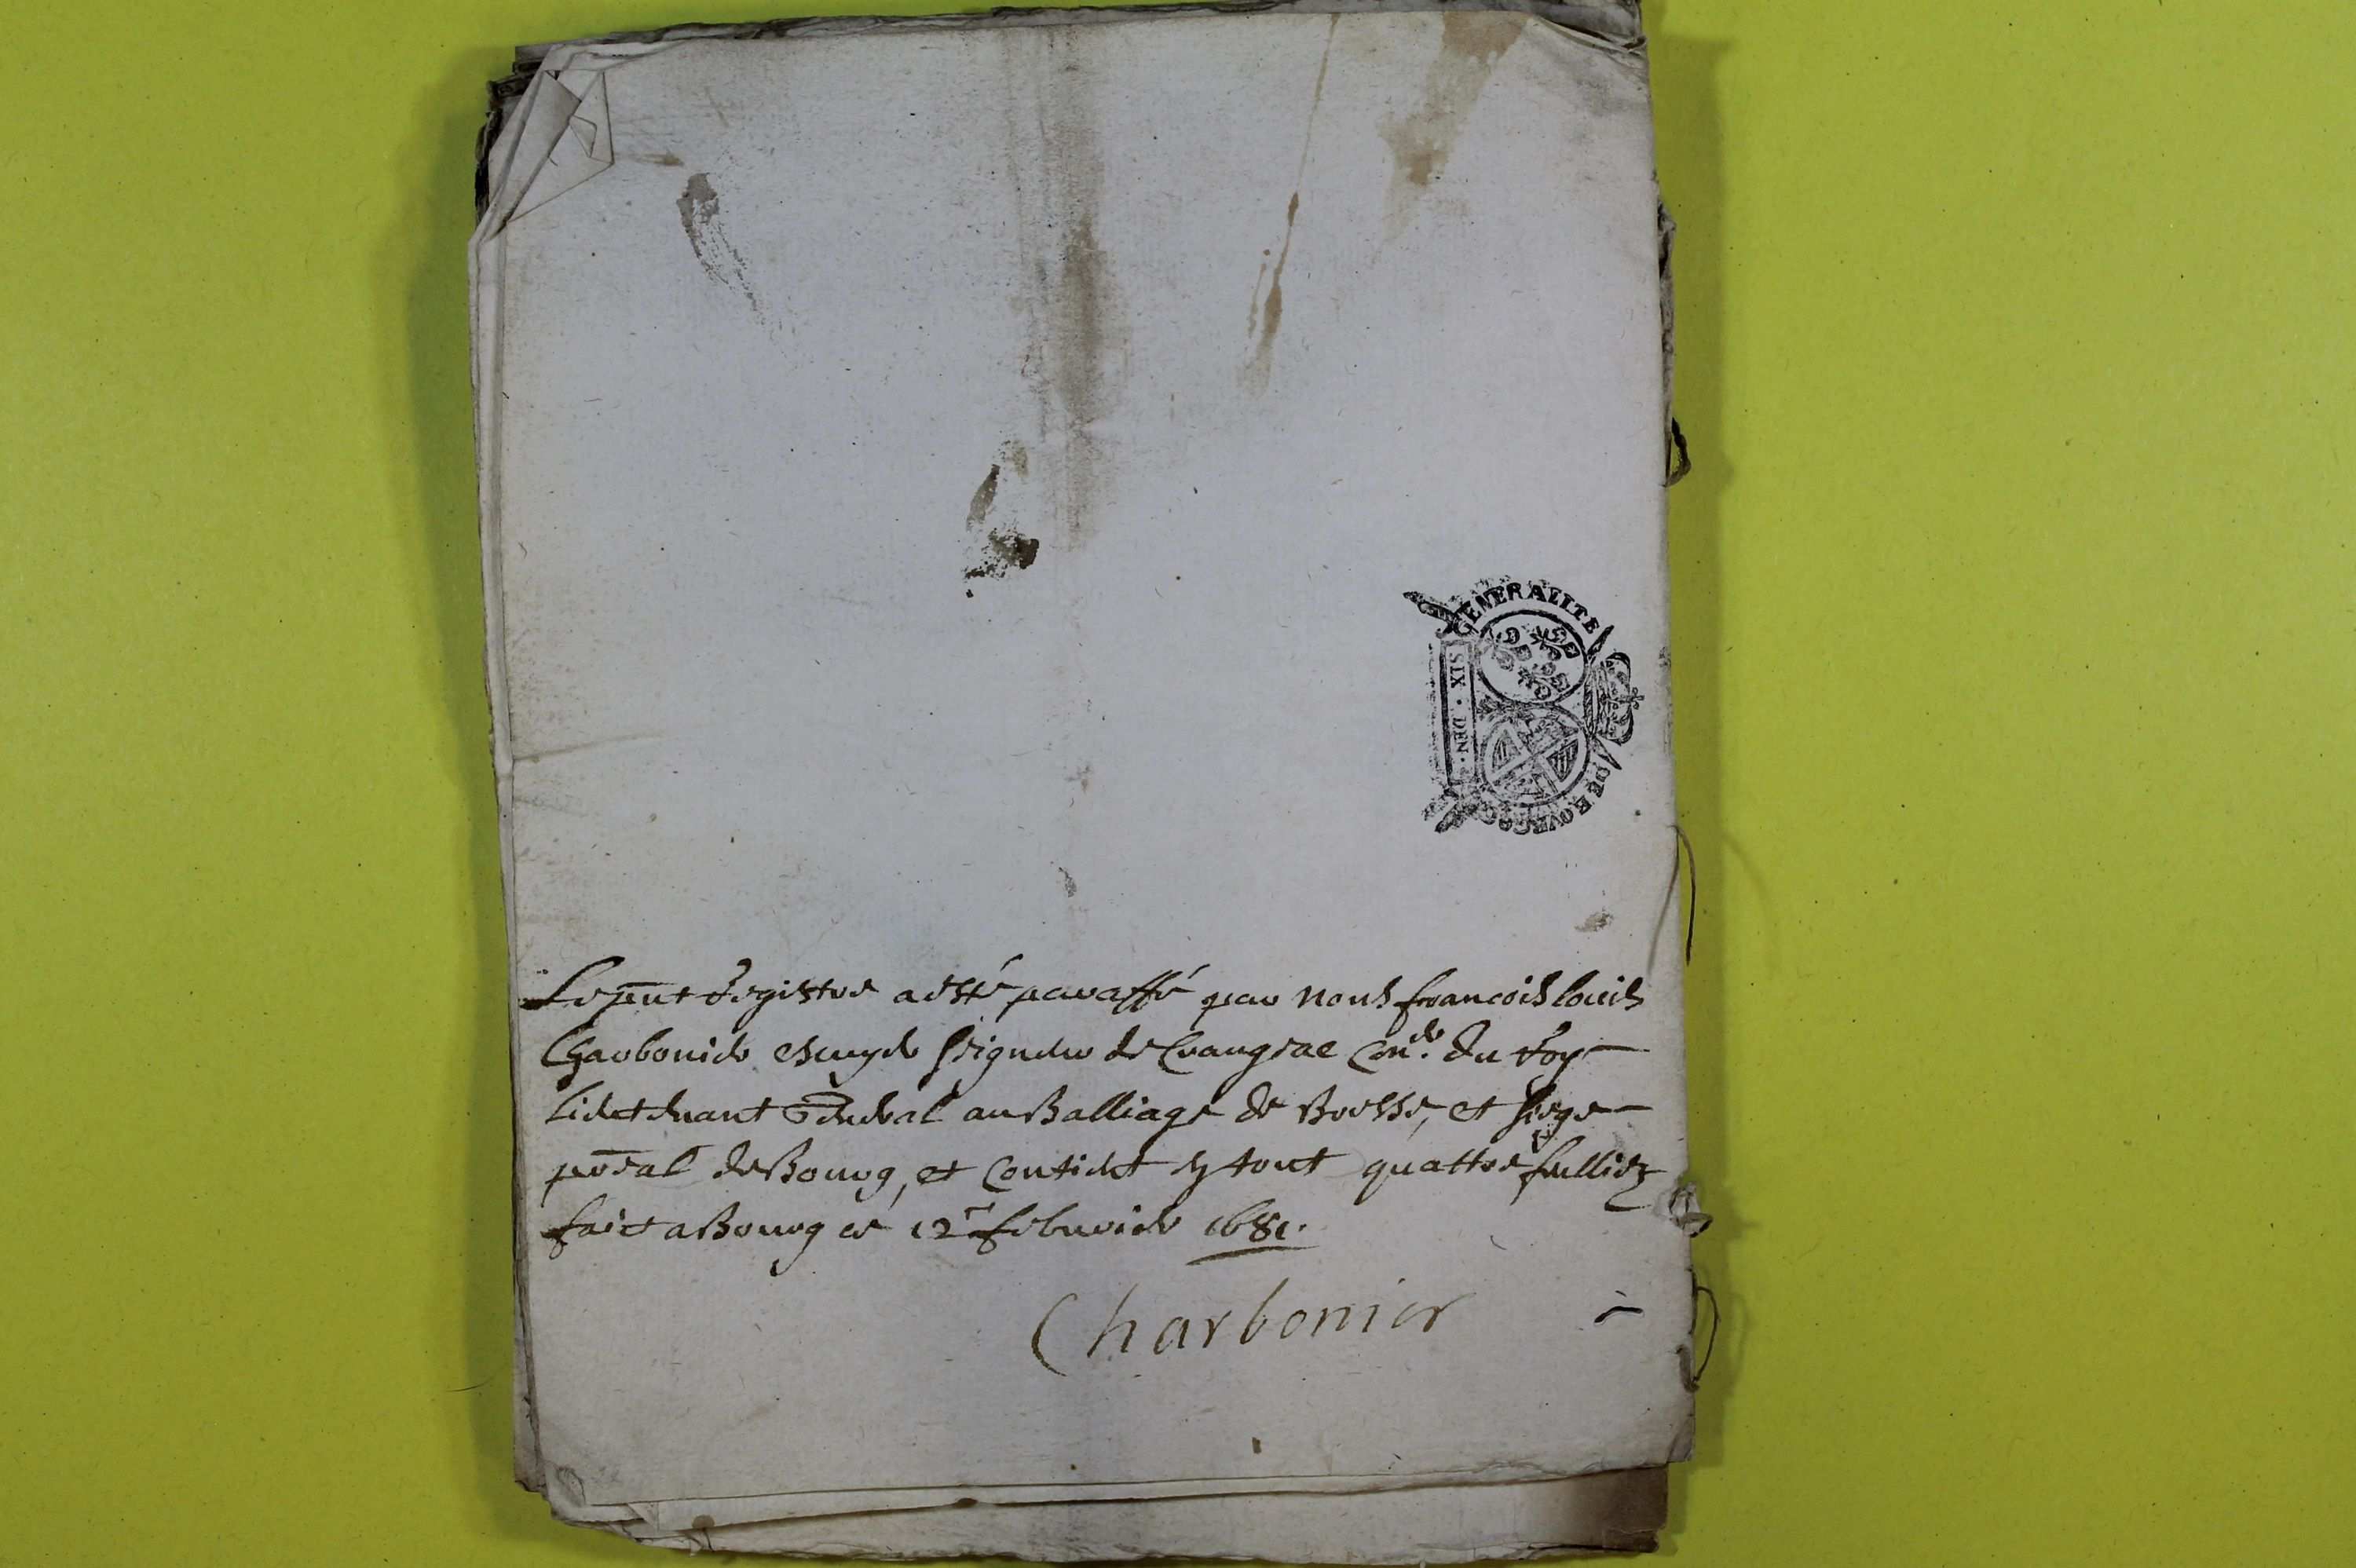 GENERALITE DE BOVRGO
SIX · DEN ·
Le pnt Registre a esté paraffé par nous francois louis
Charbonier escuyer seigneur de Crangeac Conер. du Roy
lieutenant General au Balliage de Bresse, et siege
pnal de Bourg, et contient en tout quattre fulliez
faict a Bourg ce 12e febvrier 1681.
Charbonier